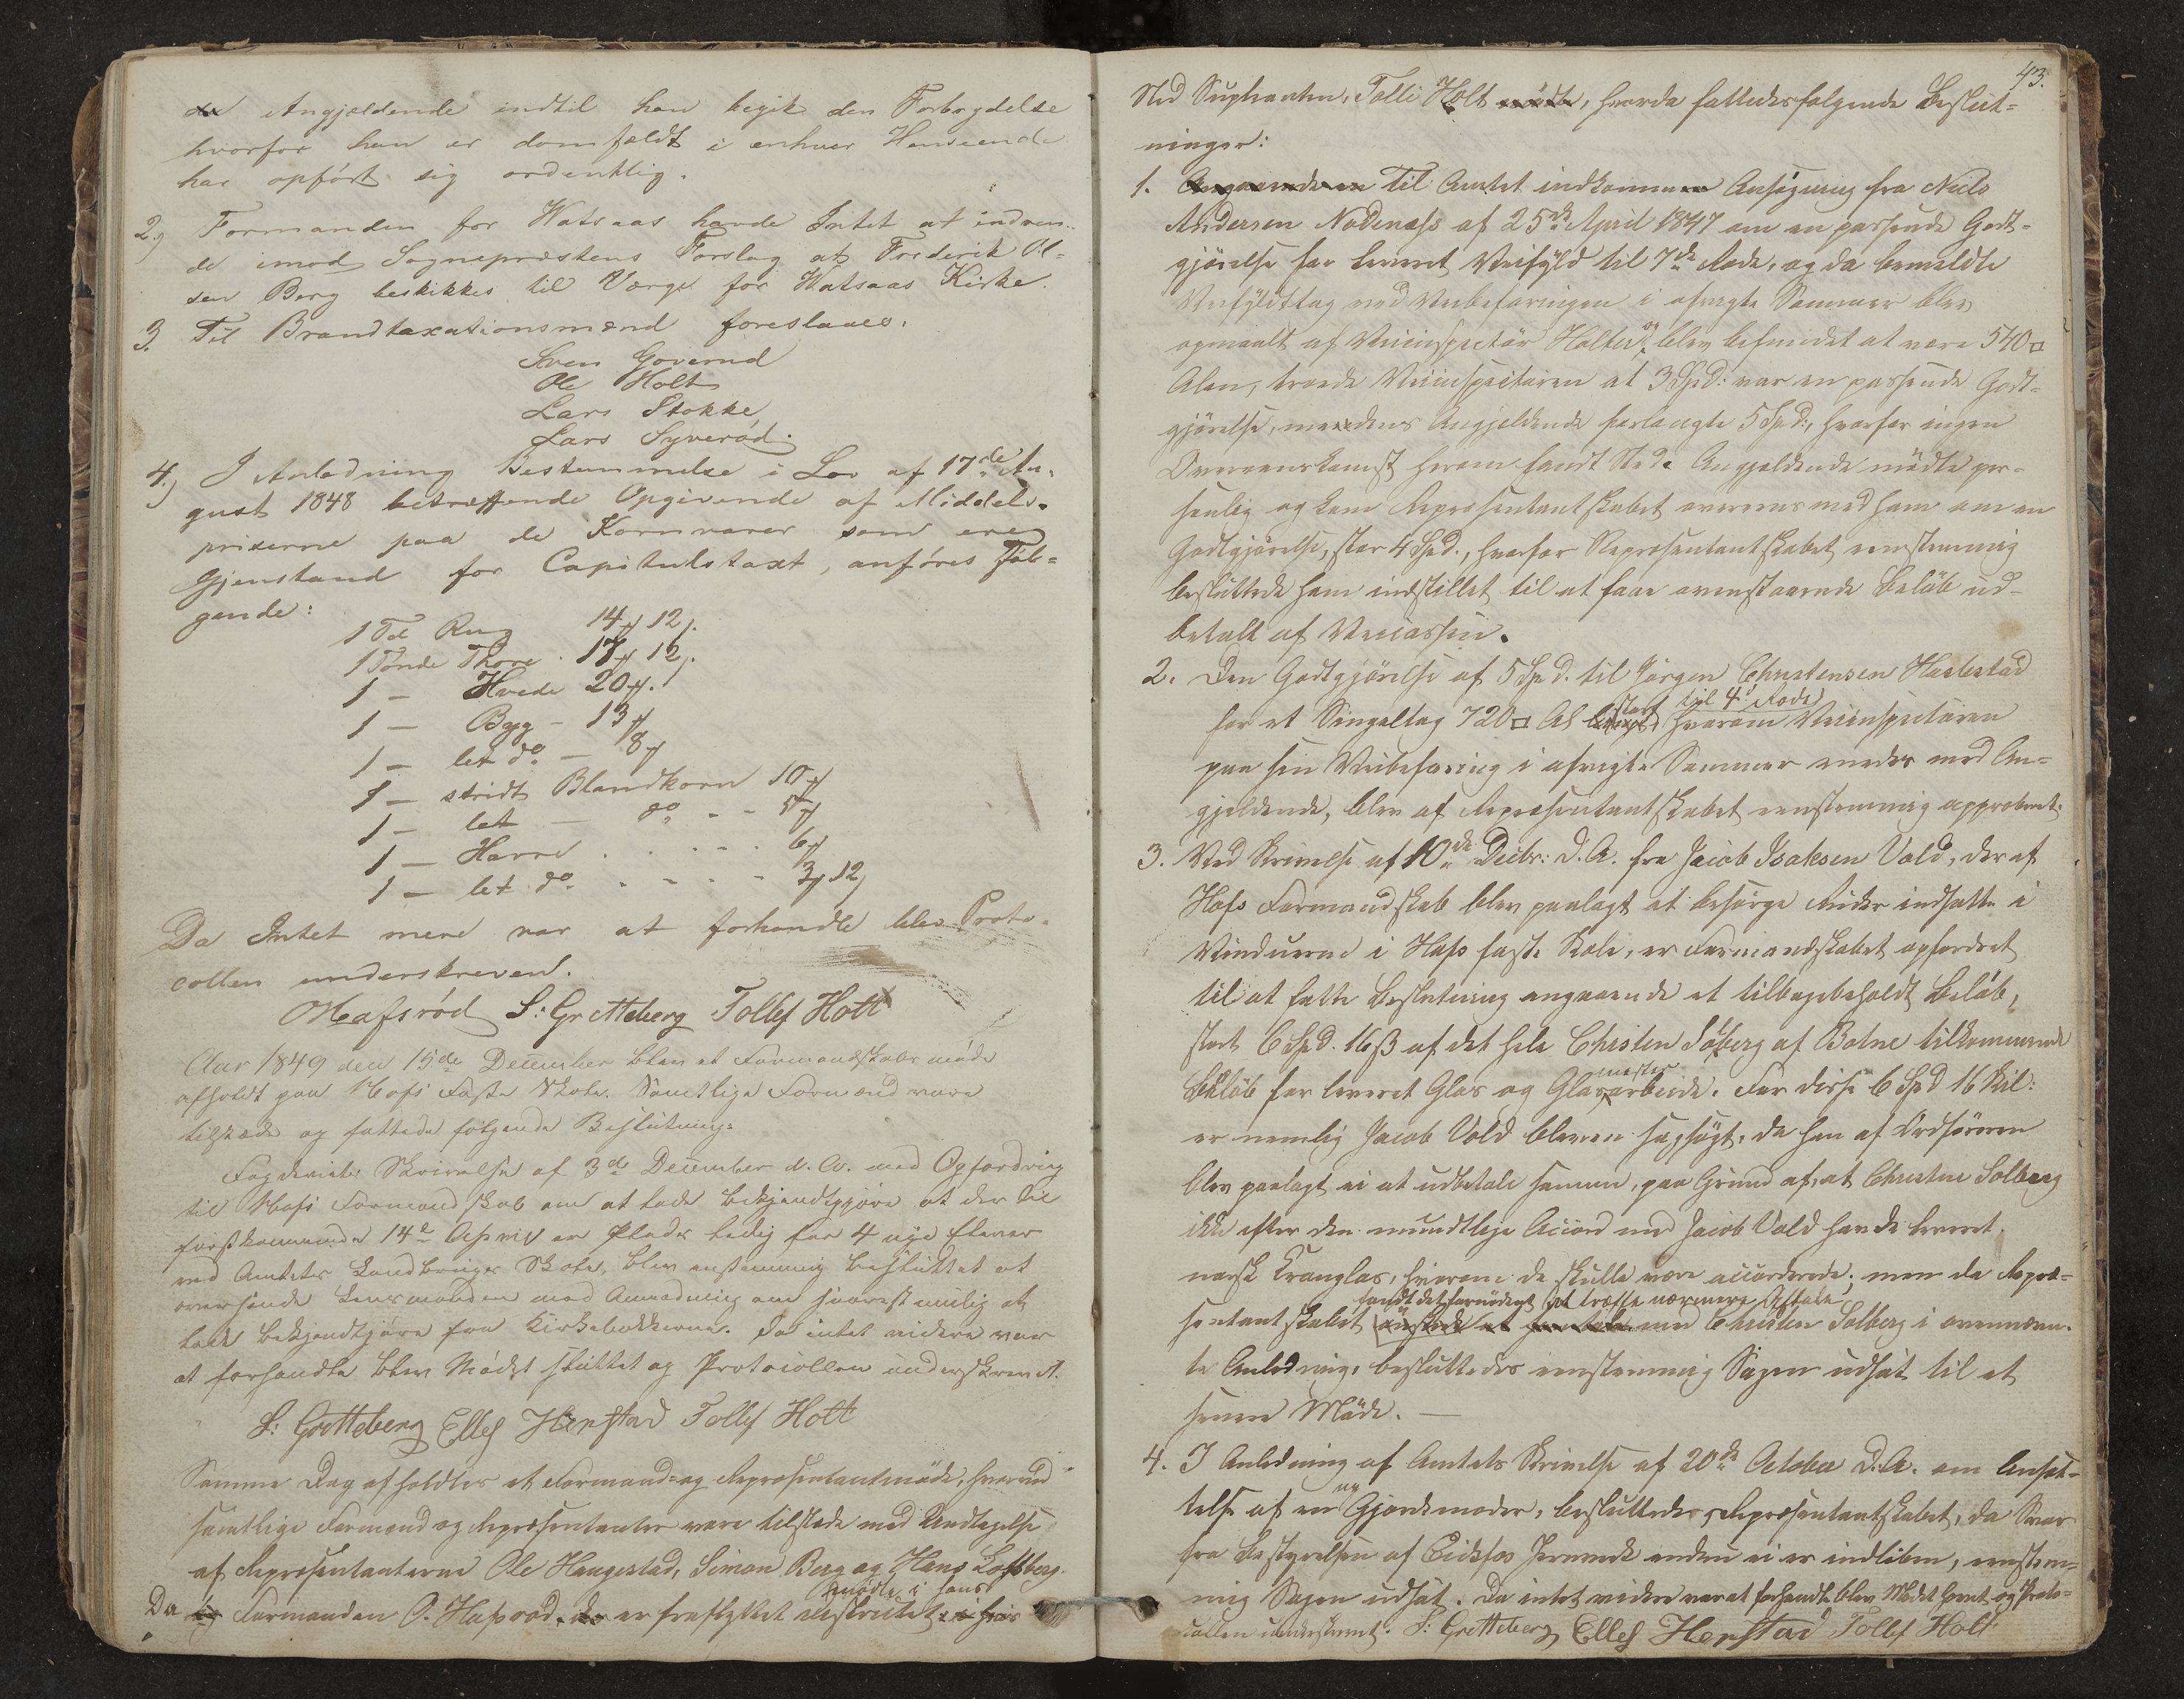 Angjældende indtil han begik den Forbrydelse
hvorfor han er domfældt i enhver Henseende
har opført sig ordentlig.
2.) Formanden for Watsaas havde Intet at indven-
de imod Sognepræstens Forslag at Frederik Ol-
sen Berg beskikkes til Værge for Watsaas Kirke.
3. Til Brandtaxationsmænd foreslaaes.
Sven Goverud
Ole Holt
Lars Stokke
Lars Syverød.
4.) I Anledning Bestemmelse i Lov af 17de Au-
gust 1848 betræffende Opgivende af Middels-
priserne paa de Kornvarer som ere
Gjenstand for Capitulstaxt, anføres Føl-
gende:
1 Td Rug 14 12
1 Tønde Thore 17 12
1 — Hvede 20
1 — Byg – 13
1 — let do – 8
1 — stridt Blandkorn 10
1 — let — do - - 5
1 — Havre . . . . 6
1 — let do - - - - 3 12
Da Intet mere var at forhandle blev Proto-
collen underskreven.
OHafsrød S: Gretteberg Tollef Holt
Aar 1849 den 15de December blev et Formandskabsmøde
afholdt paa Hofs Faste Skole. Samtlige Formænd vare
tilstæde og fattede følgende Beslutning:
Fogderiets Skrivelse af 3de December d. A. med Opfordring
til Hofs Formandskab om at lade bekjendtgjøre at der til
førstkommende 14de April er Plads ledig for 4 nye Elever
ved Amtets Landbrugs Skole, blev enstemmig besluttet at
oversende Lensmanden med Anmodning om snarest mulig at
lade bekjendtgjøre fra Kirkebakkerne. Da intet videre var
at forhandle blev Mødet sluttet og Protocollen underskrevet.
S: Gretteberg Ellef Henstad Tollef Holt
Samme Dag afholdtes et Formand- og Repræsentantmøde, hvorved
samtlige Formænd og Repræsentanter vare tilstede med Undtagelse
af Repræsentanterne Ole Haugestad, Simon Berg og Hans Loftsberg.
mødte i hans
Da Formanden O. Hafsrød er fraflyttet districtet
43.
Sted Suplianten, Tolli Holt, hvorda fattedes følgende Beslut-
ninger:
1. Til Amtet indkommen Ansøgning fra Niels
Andersen Nødenæss af 25de April 1847 om en passende Godt-
gjørelse for leveret Veifyld til 7de Rode, og da bemeldte
Veifyldttag ved Veibefaringen i afvigte Sommer blev
opmaalt af Veiinspectør Holter og blev befundet at være 540 □
Alen, troede Veiinspectøren at 3 Spd: var en passende Godt-
gjørelse, medens Angjeldende forlangte 5 Spd:, hvorfor ingen
Overeenskomst herom fandt Sted. Angjeldende mødte per-
sonlig og kom Repræsentantskabet overeens med ham om en
Godtgjørelse, stor 4 Spd., hvorfor Repræsentantskabet eenstemmig
besluttede ham indstillet til at faae ovenstaaende Beløb ud-
betalt af Veicassen.
2. Den Godtgjørelse af 5 Spd. til Jørgen Christensen Haslestad
stort til 4de Rode
for et Singeltag 720 □ Al hvorom Veiinspectøren
paa sin Veibefaring i afvigte Sommer enedes med An-
gjeldende, blev af Repræsentantskabet eenstemmig approberet.
3. Ved Skrivelse af 10de Decbr: d. A. fra Jacob Isaksen Vold, der af
Hofs Formandskab blev paalagt at besørge Ruder indsatte i
Vinduerne i Hofs faste Skole, er Formandskabet opfordret
til at fatte Beslutning angaaende et tilbageholdt Beløb,
stort 6 Spd. 16 ß af det hele Christen Solberg af Botne tilkommende
mester
Beløb for leveret Glas og Glasarbeide. For disse 6 Spd 16 Skil:
er nemlig Jacob Vold bleven sagsøgt, da han af Ordføreren
blev paalagt ei at udbetale samme, paa Grund af, at Christen Solberg
ikke efter den mundtlige Accord med Jacob Vold havde leveret
norsk Kronglas, hvorom de skulle være accorderede; men da Repræ-
fandt det fornødent at træffe nærmere Aftale
sentantskabet med Christen Solberg i ovennævn-
te Anledning, besluttedes eenstemmig Sagen udsat til et
senere Møde. —
4. I Anledning af Amtets Skrivelse af 20de October d. A. om Ansæt-
telse af en ny Gjordemoder, besluttedes Repræsentantskabet, da Svar
fra Bestyrelsen af Eidsfos Jernværk endnu ei er indløben, eenstem-
mig Sagen udsat. Da intet videre var at forhandle blev Mødet hævet og Proto-
collen underskrevet. S: Gretteberg Ellef Henstad Tollef Holt